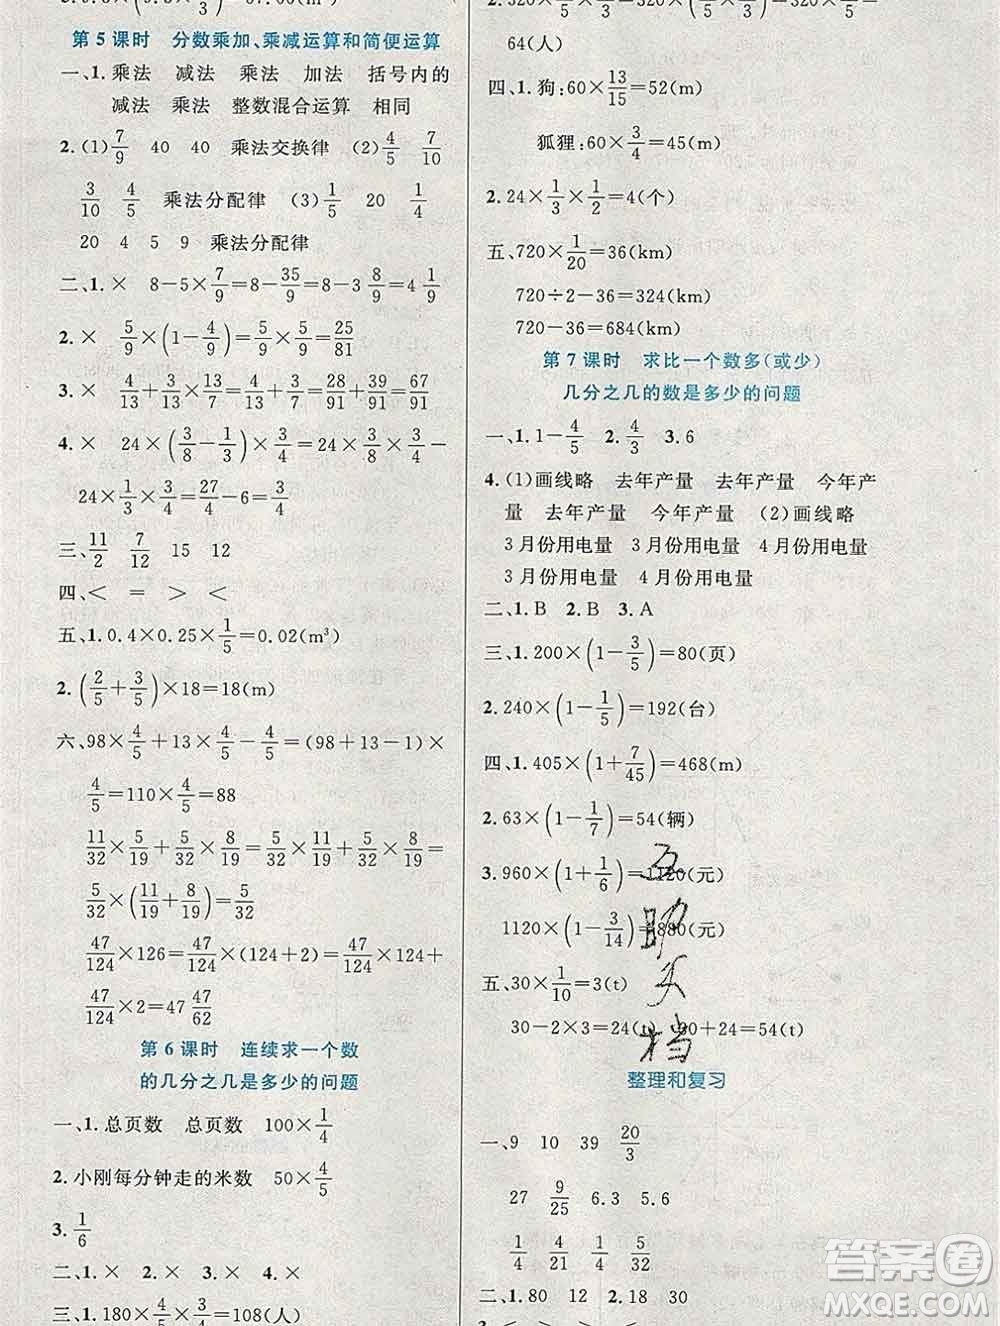 第5课时 分数乘加、乘减运算和简便运算
一、1. 乘法 减法 乘法 加法 括号内的
减法 乘法 整数混合运算 相同
2. (1) 7/9 40 40 乘法交换律 (2) 4/5 7/10
3/10 4/5 乘法分配律 (3) 1/5 20 1/4
20 4 5 9 乘法分配律
二、1. × 8-5×7/9=8-35/9=8-3 8/9=4 1/9
2. × 5/9×(1-4/9)=5/9×5/9=25/81
3. × 4/13+9/13×7/9=4/13+7/13=11/13
4. × 24×(3/8-1/3)×3/4=24×3/8×3/4-
24×1/3×3/4=27/4-6=3/4
三、11/2 7/12 15 12
四、< = > <
五、1. 0.4×0.25×1/5=0.02(m³)
2. (2/5+3/5)×18=18(m)
六、98×4/5+13×4/5-4/5=(98+13-1)×
4/5=110×4/5=88
11/32×5/19+5/32×8/19=5/32×11/19+5/32×8/19=
5/32×(11/19+8/19)=5/32
47/124×126=47/124×(124+2)=47/124×124+
47/124×2=47 47/62
第6课时 连续求一个数
的几分之几是多少的问题
一、1. 总页数 总页数 100×1/4
2. 小刚每分钟走的米数 50×4/5
3. 1/6
二、1. × 2. × 3. × 4. ×
三、1. 180×4/5×3/4=108(人)
64(人)
四、1. 狗:60×13/15=52(m)
狐狸:60×3/4=45(m)
2. 24×1/3×1/2=4(个)
五、720×1/20=36(km)
720÷2-36=324(km)
720-36=684(km)
第7课时 求比一个数多(或少)
几分之几的数是多少的问题
一、1. 1-4/5 2. 4/3 3. 6
4. (1)画线略 去年产量 去年产量 今年产
量 去年产量 今年产量 (2)画线略
3月份用电量 3月份用电量 4月份用电量
3月份用电量 4月份用电量
二、1. B 2. B 3. A
三、1. 200×(1-3/5)=80(页)
2. 240×(1-1/5)=192(台)
四、1. 405×(1+7/45)=468(m)
2. 63×(1-1/7)=54(辆)
3. 960×(1+1/6)=1120(元)
1120×(1-3/14)=880(元)
五、30×1/10=3(t)
30-2×3=24(t) 30+24=54(t)
整理和复习
一、9 10 39 20/3
27 9/25 6.3 5.6
1/4 4/21 1/4 5/32
二、1. 80 12 2. 18 30
答案圈
MXQE.COM